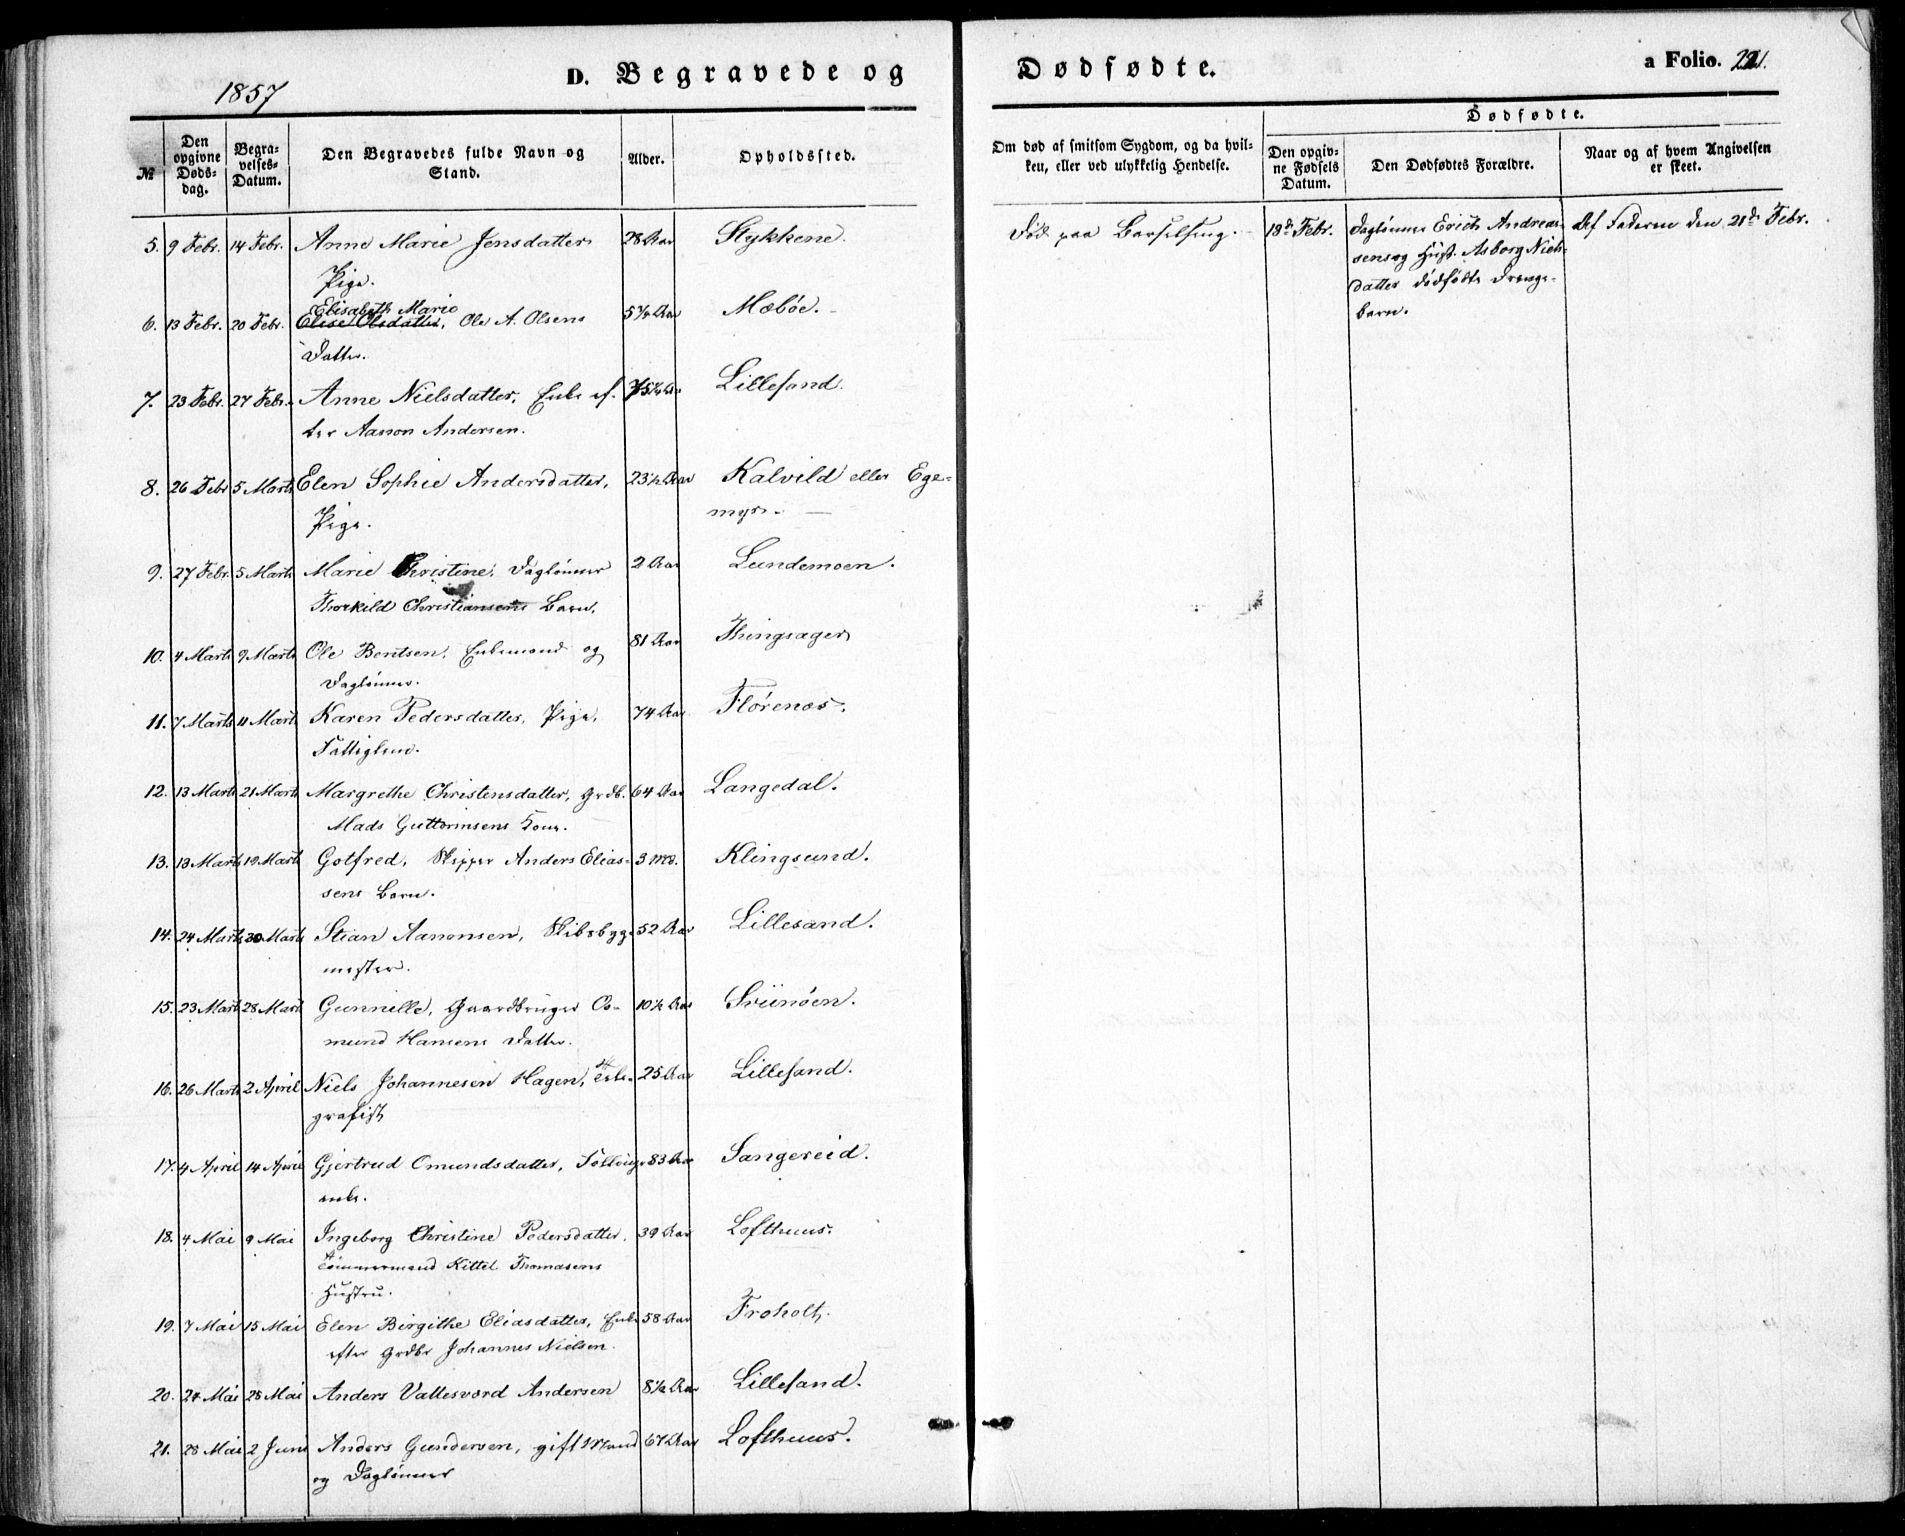 1857
D. Begravede og
Dødfødte.
a Folio. 221.
№
Den opgivne Døds-dag.
Begra-velses-Datum.
Den Begravedes fulde Navn og Stand.
Alder.
Opholdssted.
Om død af smitsom Sygdom, og da hvil-ken, eller ved ulykkelig Hendelse.
Dødfødte.
Den opgiv-ne Fødsels Datum.
Den Dødfødtes Forældre.
Naar og af hvem Angivelsen er skeet.
5. 9 Febr. 14 Febr. Anne Marie Jensdatter 28 Aar Stykkene.
Pige.
Død paa Barselseng. 18de Febr. Daglønner Erich Andreas-
Af Faderen den 21de Febr.
sens og Hust. Asborg Niels-
datters dødfødte Drenge-
barn.
Elisabeth Marie
6. 13 Febr. 20 Febr. Elise Olsdatter, Ole A. Olsens Aar Mæbøe.
Datter.
7. 23 Febr. 27 Febr. Anne Nielsdatter, Enke ef- Lillesand.
ter Aanon Andersen.
8. 26 Febr 5 Marts Elen Sophie Andersdatter, 23½ Aar Kalvild eller Ege-
Pige.
myr.
9. 27 Febr. 5 Marts Marie Christine, Daglønner 2 Aar Lundemoen.
Thorkild Christiansens Barn.
10. 4 Marts 9 Marts Ole Bentsen, Enkemand og 81 Aar Thingsager
Daglønner.
11. 7 Marts 11 Marts Karen Pedersdatter, Pige, 74 Aar Flørenæs.
Fattiglem.
12. 13 Marts 21 Marts Margrethe Christensdatter, Grdb. 64 Aar Langedal.
Mads Guttormsens Kone.
13. 13 Marts 19 Marts Gotfred, Skipper Anders Elias- 3 Md. Klingsund.
sens Barn.
14. 24 Marts 30 Marts Stian Aanonsen, Skibsbygg- 52 Aar Lillesand.
mester.
15. 23 Marts 28 Marts Gunnille, Gaardbruger Os- 10½ Aar Sviinøen.
mund Hansens Datter.
16. 26 Marts 2 April Niels Johannesen Hagen, Tele- 25 Aar Lillesand.
grafist
17. 4 April 14 April Gjertrud Omundsdatter, 83 Aar Sangereid.
enke.
18. 4 Mai 9 Mai Ingeborg Christine Pedersdatter, 39 Aar Lofthuus.
Tømmermand Kittel Thomasens
Hustru.
19. 7 Mai 15 Mai Elen Birgithe Eliasdatter, Enke 58 Aar Froholt.
efter Grdbr Johannes Nielsen.
20. 24 Mai 28 Mai Anders Vallesværd Andersen 8½ Aar Lillesand.
21. 28 Mai 2 Juni Anders Gundersen, gift Mand 67 Aar Lofthuus.
og Daglønner